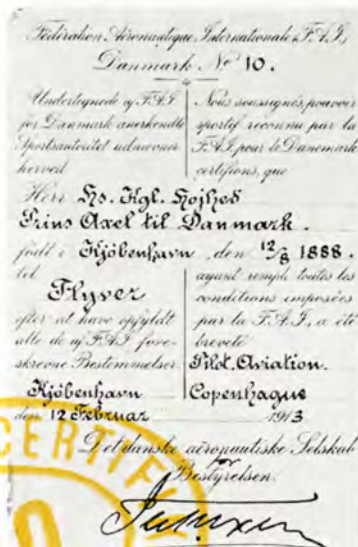 Fédération Aéronautique Internationale (F.A.I.)
Danmark No 10.
Undertegnede af F.A.I.
for Danmark anerkendte
Sportsautoritet udnævner
herved
Nous soussignés, pouvoir
sportif reconnu par la
F.A.I. pour le Danemark
certifions, que
Herr Hs. Kgl. Højhed
Prins Axel til Danmark.
født i Kjöbenhavn, den 12/8 1888.
til
Flyver
efter at have opfyldt
alle de af F.A.I. fore-
skrevne Bestemmelser.
Kjöbenhavn
den 12 Februar
ayant rempli toutes les
conditions imposées
par la F.A.I., a été
breveté
Pilot. Aviation.
Copenhague
1913
Det danske aëronautiske Selskab
for
Bestyrelsen.
CERTIFI